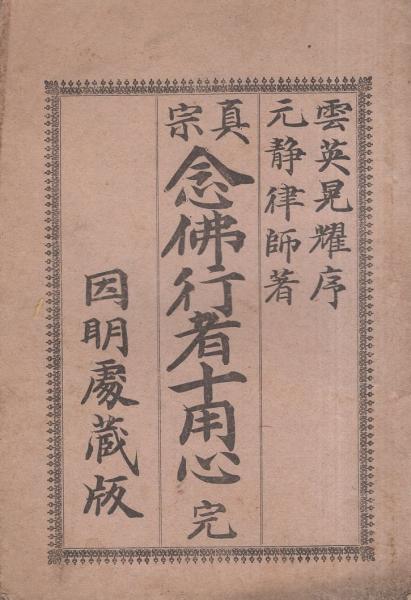 雲英晃耀序
元静律師著
真宗
念佛行者十用心 完
因明處蔵版